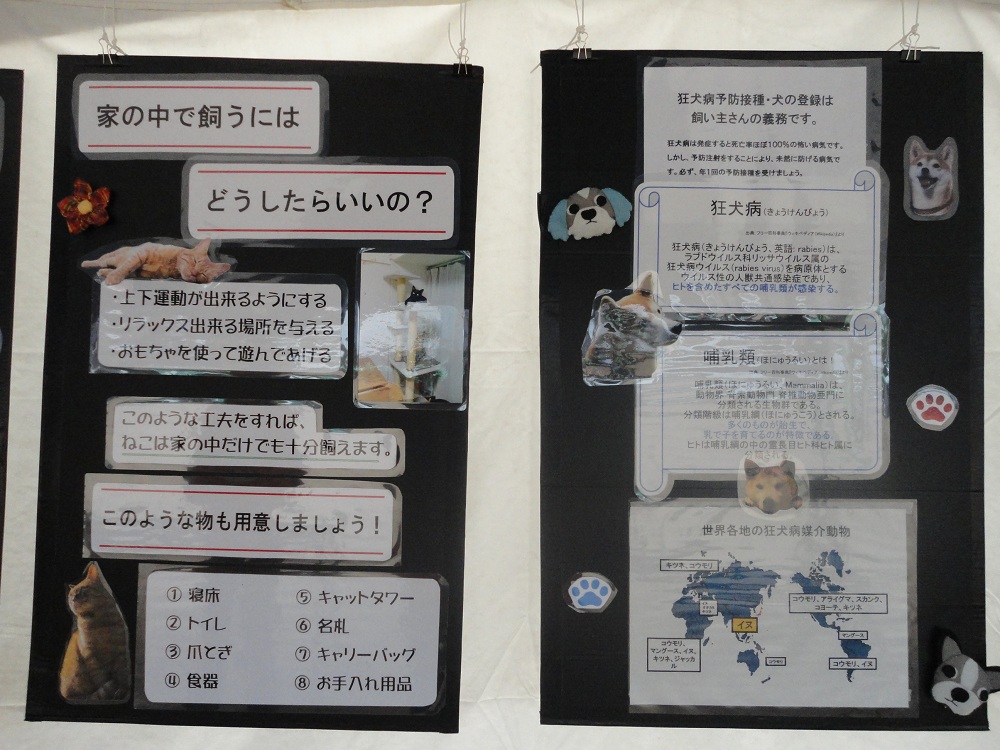 家の中で飼うには
どうしたらいいの？
・上下運動が出来るようにする
・リラックス出来る場所を与える
・おもちゃを使って遊んであげる
このような工夫をすれば、
ねこは家の中だけでも十分飼えます。
このような物も用意しましょう！
① 寝床
② トイレ
③ 爪とぎ
④ 食器
⑤ キャットタワー
⑥ 名札
⑦ キャリーバッグ
⑧ お手入れ用品
狂犬病予防接種・犬の登録は
飼い主さんの義務です。
狂犬病は発症すると死亡率ほぼ100%の怖い病気です。
しかし、予防注射をすることにより、未然に防げる病気で
す。必ず、年1回の予防接種を受けましょう。
狂犬病(きょうけんびょう)
狂犬病(きょうけんびょう、英語: rabies)は、
ラブドウイルス科リッサウイルス属の
狂犬病ウイルス(rabies virus)を病原体とする
ウイルス性の人獣共通感染症であり、
ヒトを含めたすべての哺乳類が感染する。
哺乳類(ほにゅうるい)とは!
哺乳類(ほにゅうるい、Mammalia)は、
動物界 脊索動物門 脊椎動物亜門に
分類される生物群である。
分類階級は哺乳綱(ほにゅうこう)とされる。
多くのものが胎生で、
乳で子を育てるのが特徴である。
ヒトは哺乳綱の中の霊長目ヒト科ヒト属に
分類される。
世界各地の狂犬病媒介動物
キツネ、コウモリ
コウモリ、アライグマ、スカンク、
コヨーテ、キツネ
イヌ
マングース
コウモリ、
マングース、イヌ、
キツネ、ジャッカ
ル
コウモリ
コウモリ、イヌ